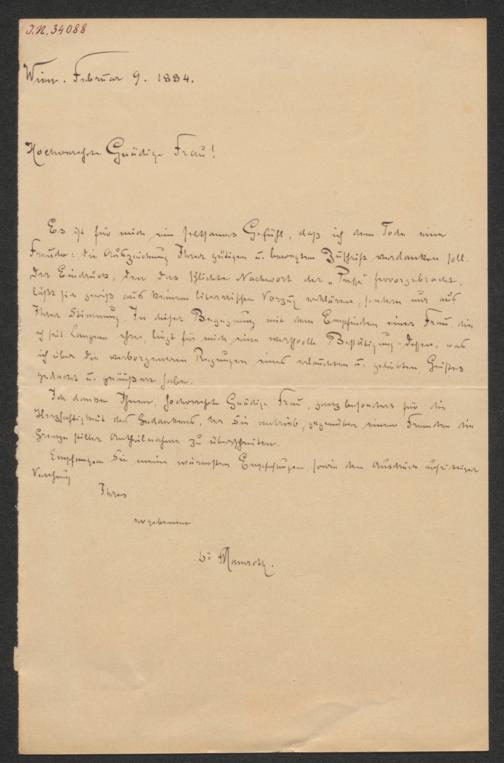 J.N. 34088
Wien. Februar 9. 1884.
Hochverehrte Gnädige Frau!
Es ist für mich ein seltsames Gefühl, daß ich dem Tode eine
Freude: die Auszeichnung Ihrer gütigen u. bewegten Zuschrift verdanken soll.
Der Eindruck, den das schlichte Nachwort der „Presse" hervorgebracht,
läßt sich gewiß aus keinem literarischen Vorzug erklären, sondern nur aus
Ihrer Stimmung. In dieser Begegnung mit dem Empfinden einer Frau, die
ich seit Langem ehre, liegt für mich eine werthvolle Bestätigung dessen, was
ich über die verborgeneren Regungen eines erlauchten u. geliebten Geistes
gedacht u. geäußert habe.
Ich danke Ihnen, hochverehrte Gnädige Frau, ganz besonders für die
Herzhaftigkeit des Gedankens, der Sie antrieb, gegenüber einem Fremden die
Grenze stiller Antheilnahme zu überschreiten.
Empfangen Sie meine wärmsten Empfehlungen sowie den Ausdruck aufrichtiger
Verehrung
Ihres
ergebenen
Mamroth.